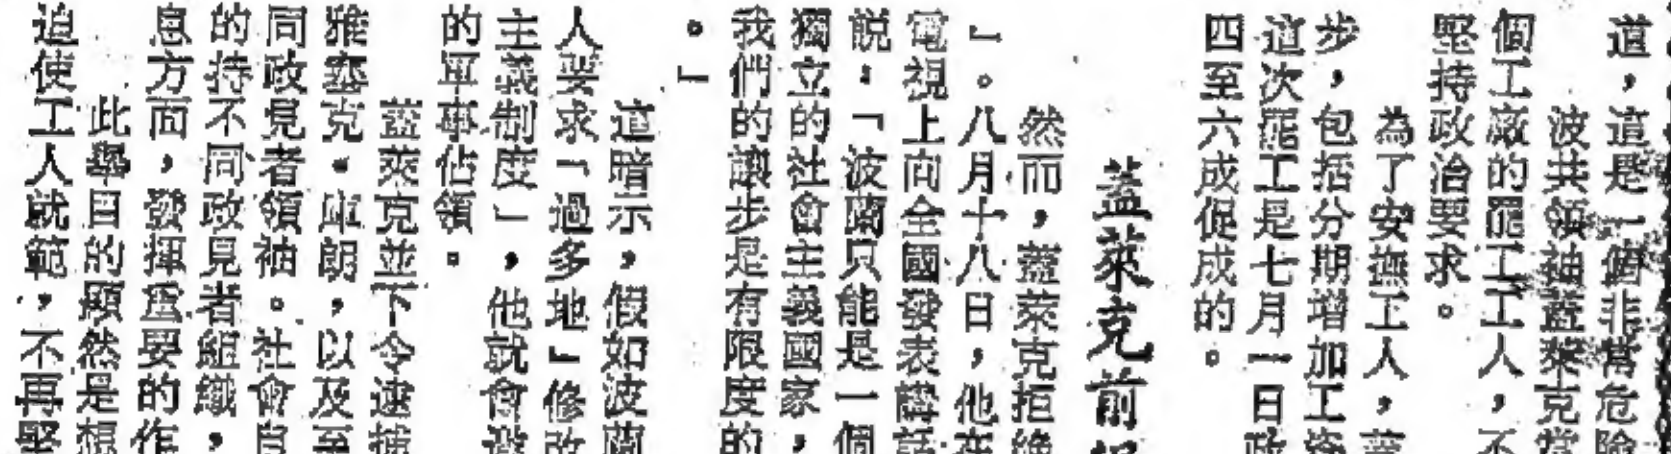 道，這是一個非常危險
波共領袖蓋萊克當
個工廠的罷工工人，不
堅持政治要求。
為了安撫工人，蓋
步，包括分期增加工資
這次罷工是七月一日政
四至六成促成的。
蓋萊克前
然而，蓋萊克拒絶
」。八月十八日，他在
電視上向全國發表講話
説：「波蘭只能是一個
獨立的社會主義國家，
我們的讓步是有限度的
。」
這暗示，假如波蘭
人要求「過多地」修改
主義制度」，他就會
的軍事佔領。
蓋萊克並下令逮捕
雅塞克·庫朗，以及至
同政見者領袖。社會自
的持不同政見者組織，
息方面，發揮重要的作
此舉目的顯然是想
迫使工人就範，不再堅